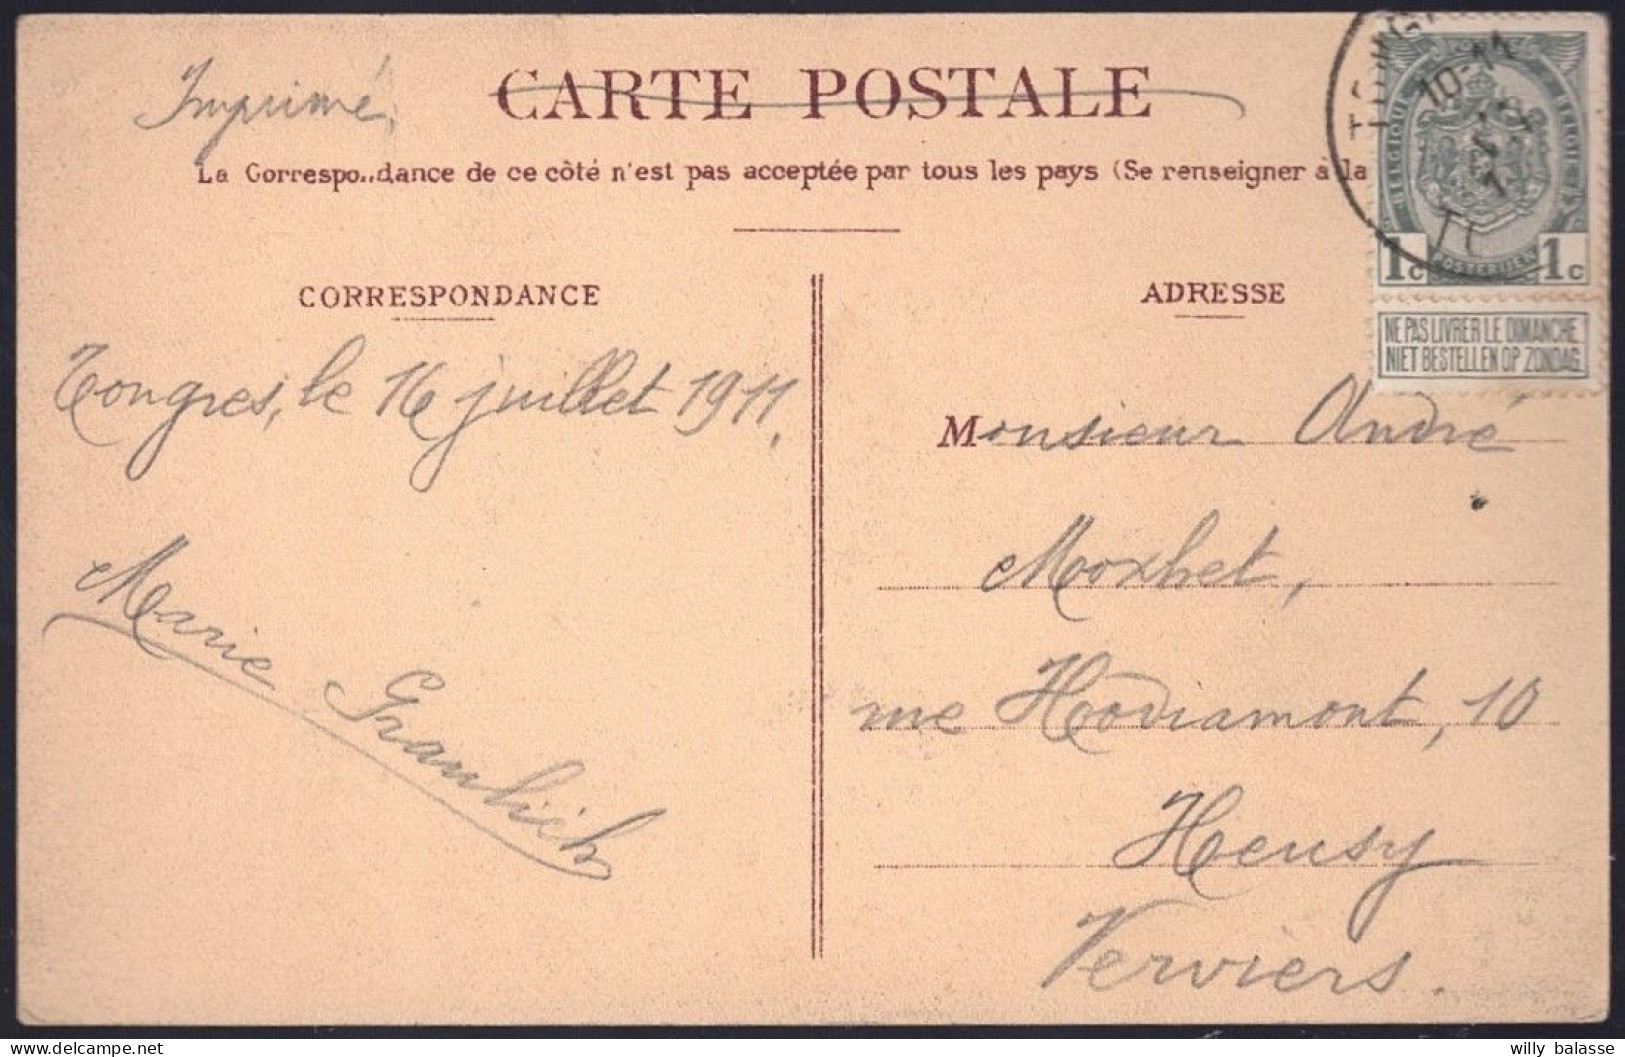 Imprimé
CARTE POSTALE
La Correspondance de ce côté n'est pas acceptée par tous les pays (Se renseigner à la
BELGIQUE
BELGIË
10-11
POSTERIJEN
1c
1c
NE PAS LIVRER LE DIMANCHE
NIET BESTELLEN OP ZONDAG
CORRESPONDANCE
Tongres, le 16 juillet 1911.
Marie Graulich
ADRESSE
Monsieur André
Moxhet,
rue Hodiamont, 10
Heusy
Verviers.
delcampe.net
willy balasse